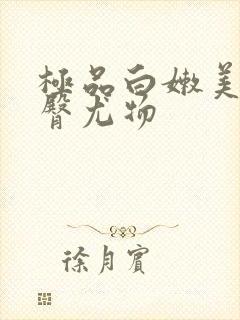 極品白嫩美
臀尤物
徐月賓